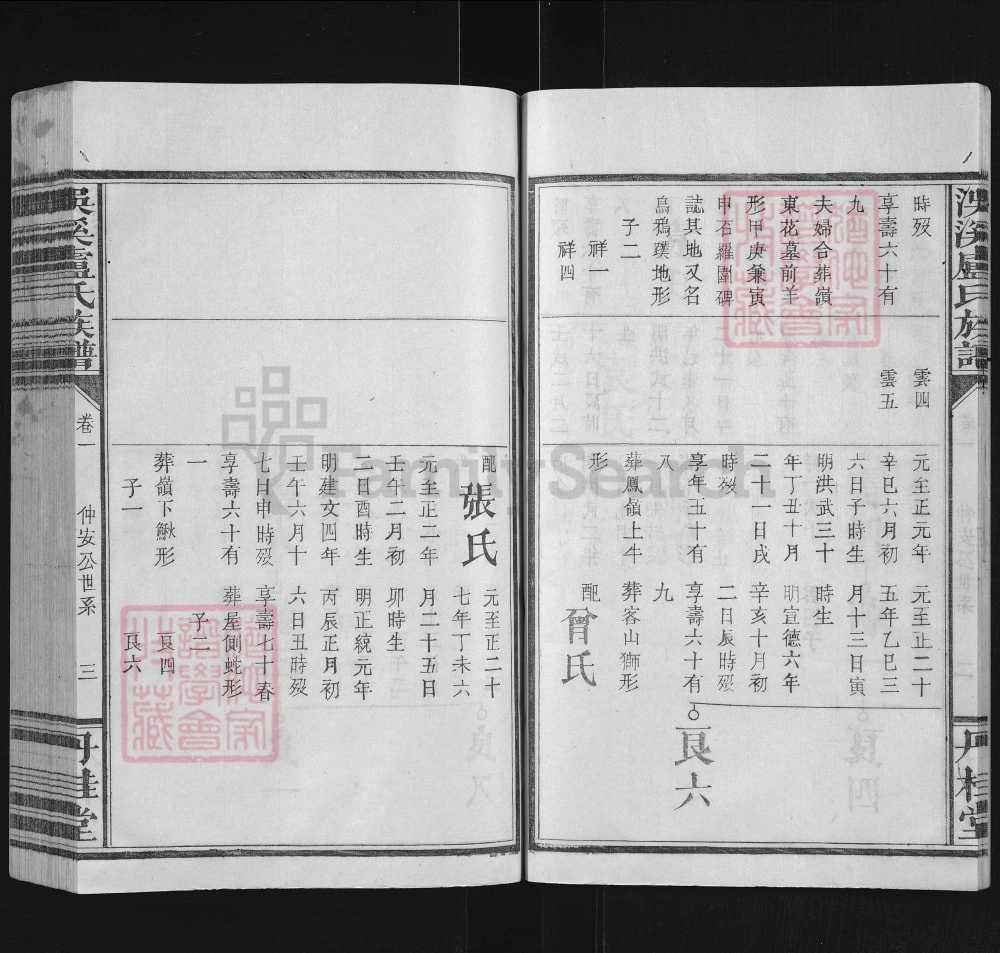 淏溪盧氏族譜
丹桂堂
時歿
享壽六十有
九
夫婦合葬嶺
東花墓前羊
形甲庚兼寅
申石羅圍碑
誌其地又名
烏鴉璞地形
子二
祥一
祥四
雲四
雲五
元至正元年
辛巳六月初
六日子時生
明洪武三十
年丁丑十月
二十一日戌
時歿
享年五十有
八
葬鳳嶺上牛
形
元至正二十
五年乙巳三
月十三日寅
時生
明宣德六年
辛亥十月初
二日辰時歿
享壽六十有
九
葬客山獅形
配曾氏
良六
配張氏
元至正二年
壬午二月初
二日酉時生
明建文四年
壬午六月十
七日申時歿
享壽六十有
一
葬嶺下鰍形
子一
元至正二十
七年丁未六
月二十五日
卯時生
明正統元年
丙辰正月初
六日丑時歿
享壽七十春
葬屋側蛇形
子二
良四
良六
淏溪盧氏族譜
卷一
仲安公世系
三
丹桂堂
FamilySearch